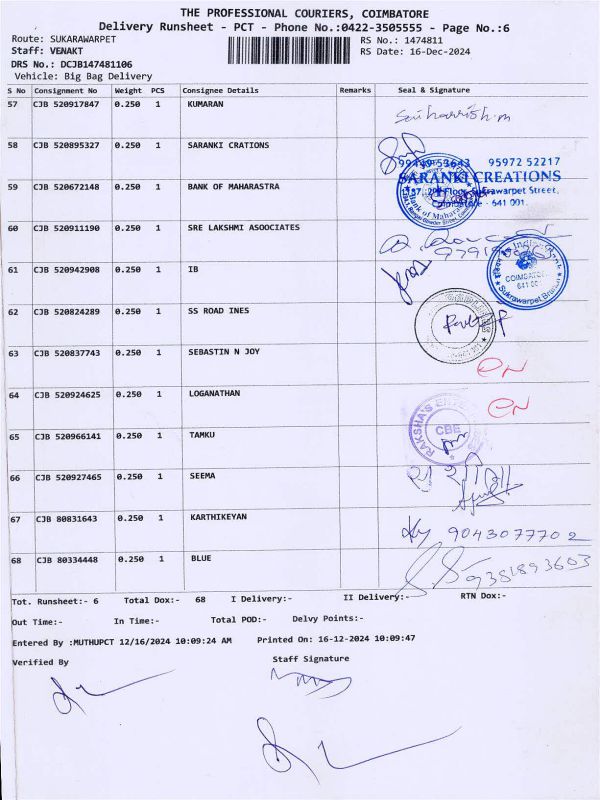 THE PROFESSIONAL COURIERS, COIMBATORE
Delivery Runsheet - PCT - Phone No.:0422-3505555 - Page No.:6
Route: SUKARAWARPET RS No.: 1474811
Staff: VENAKT RS Date: 16-Dec-2024
DRS No.: DCJB147481106
Vehicle: Big Bag Delivery
S No Consignment No Weight PCS Consignee Details Remarks Seal & Signature
57 CJB 520917847 0.250 1 KUMARAN
58 CJB 520895327 0.250 1 SARANKI CRATIONS
95972 52217
SARANKI CREATIONS
59 CJB 520672148 0.250 1 BANK OF MAHARASTRA
Floor, Sukrawarpet Street,
Coimbatore - 641 001.
60 CJB 520911190 0.250 1 SRE LAKSHMI ASOOCIATES
61 CJB 520942908 0.250 1 IB
Sukrawarpet Branch
62 CJB 520824289 0.250 1 SS ROAD INES
63 CJB 520837743 0.250 1 SEBASTIN N JOY
64 CJB 520924625 0.250 1 LOGANATHAN
RAKSHA'S
CBE
65 CJB 520966141 0.250 1 TAMKU
66 CJB 520927465 0.250 1 SEEMA
67 CJB 80831643 0.250 1 KARTHIKEYAN
9043077702
68 CJB 80334448 0.250 1 BLUE
9381893603
Tot. Runsheet:- 6 Total Dox:- 68 I Delivery:- II Delivery:- RTN Dox:-
Out Time:- In Time:- Total POD:- Delvy Points:-
Entered By :MUTHUPCT 12/16/2024 10:09:24 AM Printed On: 16-12-2024 10:09:47
Verified By Staff Signature